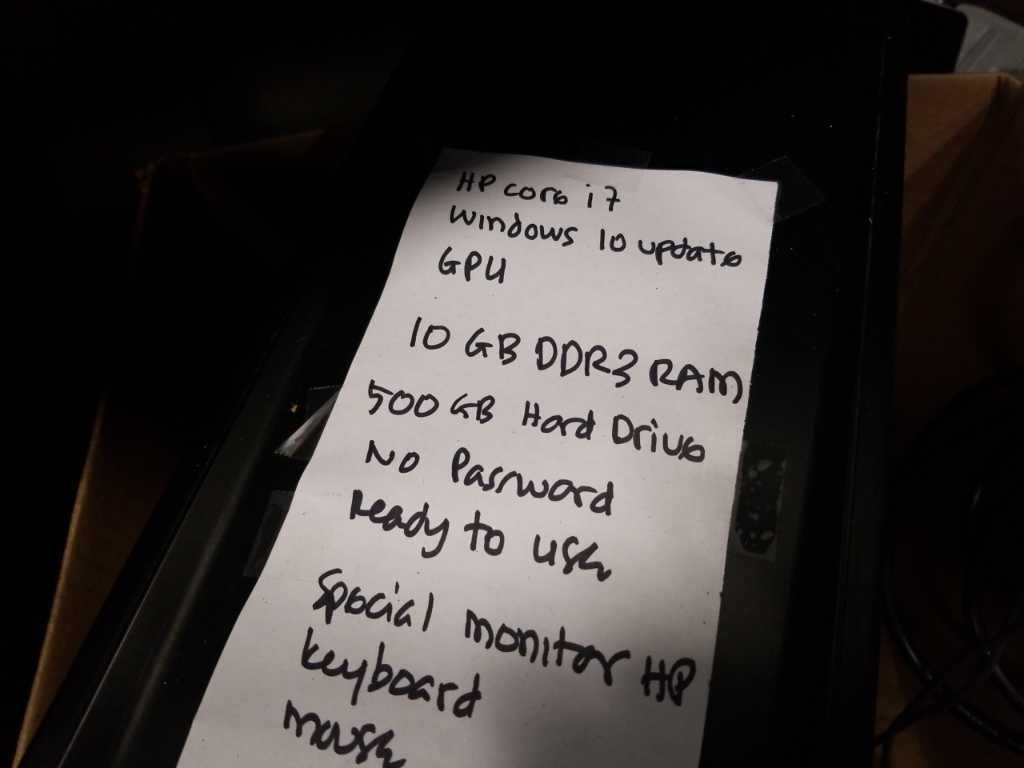 HP core i7
Windows 10 update
GPU
10 GB DDR3 RAM
500 GB Hard Drive
No Password
Ready to use
Special monitor HP
keyboard
mouse